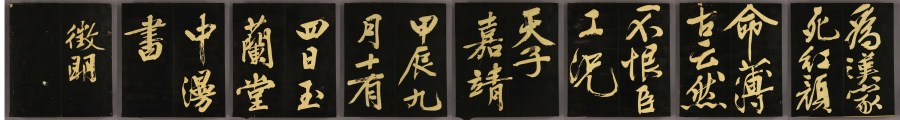 為漢家
死紅顔
命薄
古云然
不恨臣
工況
天子
嘉靖
甲辰九
月十有
四日玉
蘭堂
中漫
書
徵明